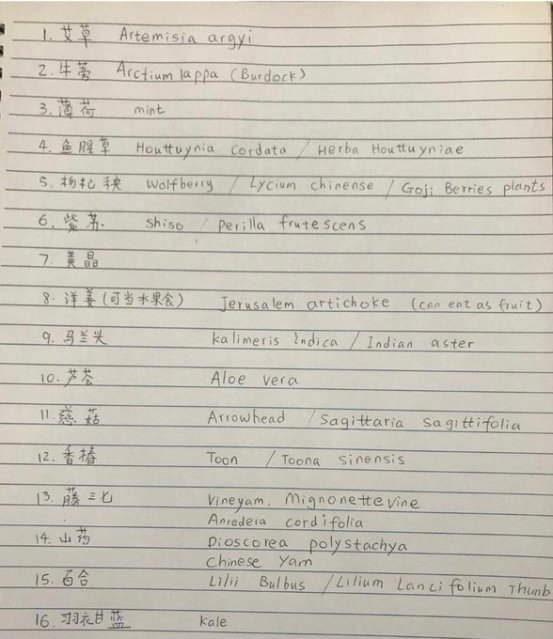 1. 艾草 Artemisia argyi
2. 牛蒡 Arctium lappa (Burdock)
3. 薄荷 mint
4. 鱼腥草 Houttuynia cordata / Herba Houttuyniae
5. 枸杞秧 Wolfberry / Lycium chinense / Goji Berries plants
6. 紫苏 shiso / perilla frutescens
7. 黄晶
8. 洋姜(可当水果食) Jerusalem artichoke (can eat as fruit)
9. 马兰头 kalimeris Indica / Indian aster
10. 芦荟 Aloe vera
11. 慈菇 Arrowhead / Sagittaria sagittifolia
12. 香椿 Toon / Toona sinensis
13. 藤三七 Vineyam. Mignonette vine
Anredera cordifolia
14. 山药 Dioscorea polystachya
Chinese Yam
15. 百合 Lilii Bulbus / Lilium Lancifolium Thunb
16. 羽衣甘蓝 kale